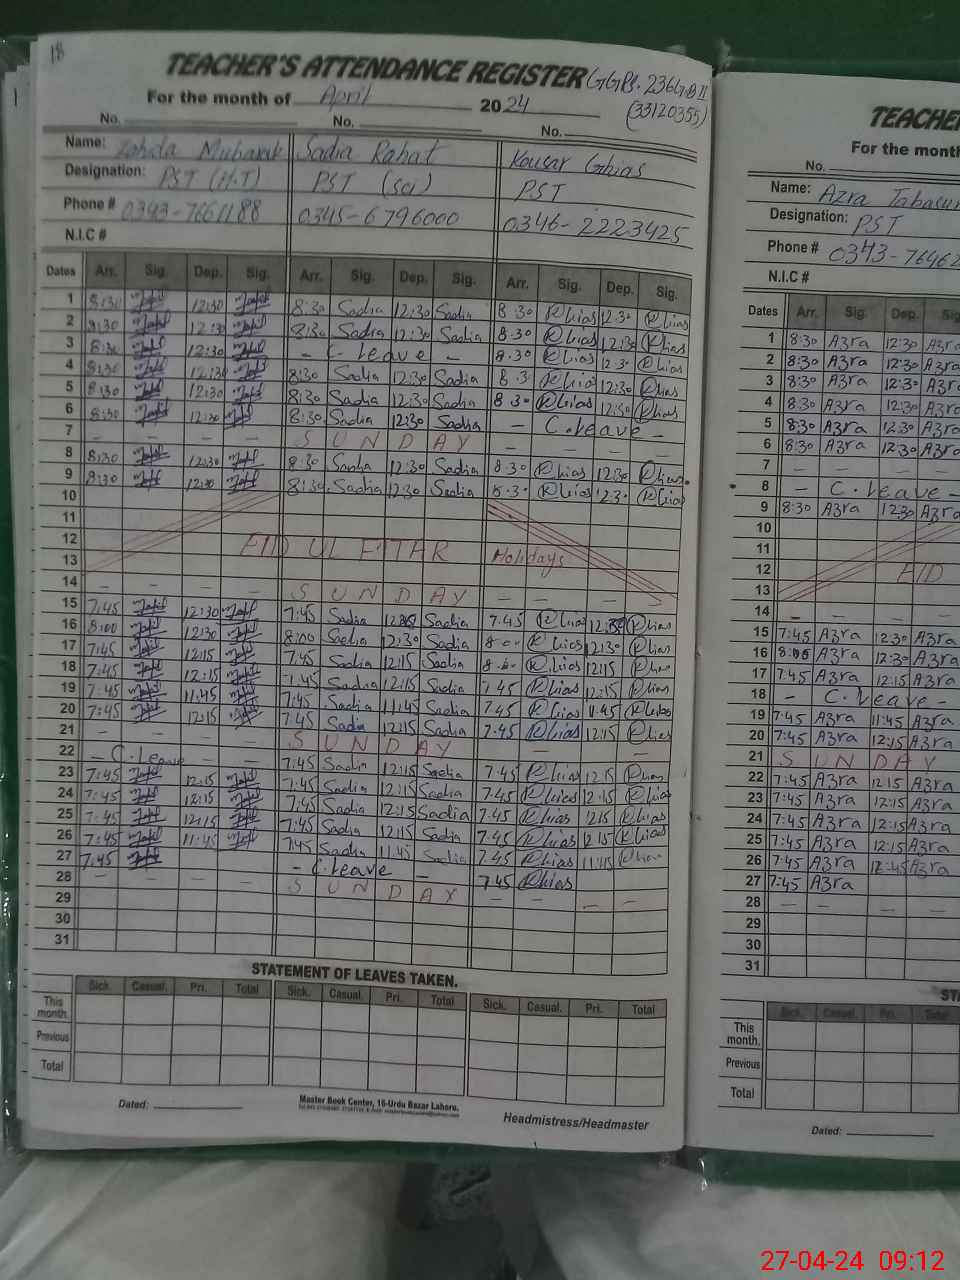 18
TEACHER'S ATTENDANCE REGISTER GGPS. 236GB II
For the month of April 2024 (33120355)
No. No. No.
Name: Zahida Mubarak Sadia Rahat Kousar Ghias
Designation: PST (H.T) PST (sci) PST
Phone # 0343-7661188 0345-6796000 0346-2223425
N.I.C #
Dates Arr. Sig. Dep. Sig. Arr. Sig. Dep. Sig. Arr. Sig. Dep. Sig.
1 8:30 12:30 8:30 Sadia 12:30 Sadia 8 30 Khias 12:30 Khias
2 8:30 12:30 8:30 Sadia 12:30 Sadia 8.30 Khias 12:30 Khias
3 8:30 12:30 - C. Leave - 8.30 Khias 12:30 Khias
4 8:30 12:30 8:30 Sadia 12:30 Sadia 8 3 Khias 12:30 Khias
5 8:30 12:30 8:30 Sadia 12:30 Sadia 8 30 Khias 12:30 Khias
6 8:30 12:30 8:30 Sadia 12:30 Sadia - C. Leave -
7 - - - - S U N D A Y - - - -
8 8:30 12:30 8:30 Sadia 12:30 Sadia 8.30 Khias 12:30 Khias
9 8:30 12:30 8:30 Sadia 12:30 Sadia 8.30 Khias 12:30 Khias
10
11
12 EID UL FITAR Holidays
13
14 - - - - S U N D A Y - - - -
15 7:45 12:30 7:45 Sadia Sadia 7.45 Khias Khias
16 8:00 12:30 8:00 Sadia 12:30 Sadia Khias 12:30 Khias
17 7:45 12:15 7:45 Sadia 12:15 Sadia Khias 12:15 Khias
18 7:45 12:15 7:45 Sadia 12:15 Sadia 7.45 Khias 12:15 Khias
19 7:45 11:45 7:45 Sadia 11:45 Sadia 7.45 Khias 11.45 Khias
20 7:45 12:15 7:45 Sadia 12:15 Sadia 7.45 Khias 12:15 Khias
21 - - - - S U N D A Y - - - -
22 - C. Leave 7:45 Sadia 12:15 Sadia 7.45 Khias 12:15 Khias
23 7:45 12:15 7:45 Sadia 12:15 Sadia 7.45 Khias 12.15 Khias
24 7:45 12:15 7:45 Sadia 12:15 Sadia 7.45 Khias 12.15 Khias
25 7:45 12:15 7:45 Sadia 12:15 Sadia 7.45 Khias 12.15 Khias
26 7:45 11:45 7:45 Sadia 11:45 Sadia 7.45 Khias 11:45 Khias
27 7:45 - C. Leave - 7.45 Khias
28 - - - - S U N D A Y - - - -
29
30
31
STATEMENT OF LEAVES TAKEN.
Sick. Casual. Pri. Total Sick. Casual. Pri. Total Sick. Casual. Pri. Total
This month.
Previous
Total
Dated:
Master Book Center, 16-Urdu Bazar Lahore.
Headmistress/Headmaster
TEACHE
For the month
No.
Name: Azra Tabasum
Designation: PST
Phone # 0343-76462
N.I.C #
Dates Arr. Sig. Dep. Sig
1 8:30 Azra 12:30 Azra
2 8:30 Azra 12:30 Azra
3 8:30 Azra 12:30 Azra
4 8:30 Azra 12:30 Azra
5 8:30 Azra 12:30 Azra
6 8:30 Azra 12:30 Azra
7 - - - -
8 - C. Leave -
9 8:30 Azra 12:30 Azra
10
11
12 EID
13
14 - - - -
15 7:45 Azra 12:30 Azra
16 8:00 Azra 12:30 Azra
17 7:45 Azra 12:15 Azra
18 - C. Leave -
19 7:45 Azra 11:45 Azra
20 7:45 Azra 12:15 Azra
21 S U N D A Y
22 7:45 Azra 12:15 Azra
23 7:45 Azra 12:15 Azra
24 7:45 Azra 12:15 Azra
25 7:45 Azra 12:15 Azra
26 7:45 Azra Azra
27 7:45 Azra
28 - - - -
29
30
31
STA
Sick. Casual. Pri. Total
This month.
Previous
Total
Dated:
27-04-24 09:12